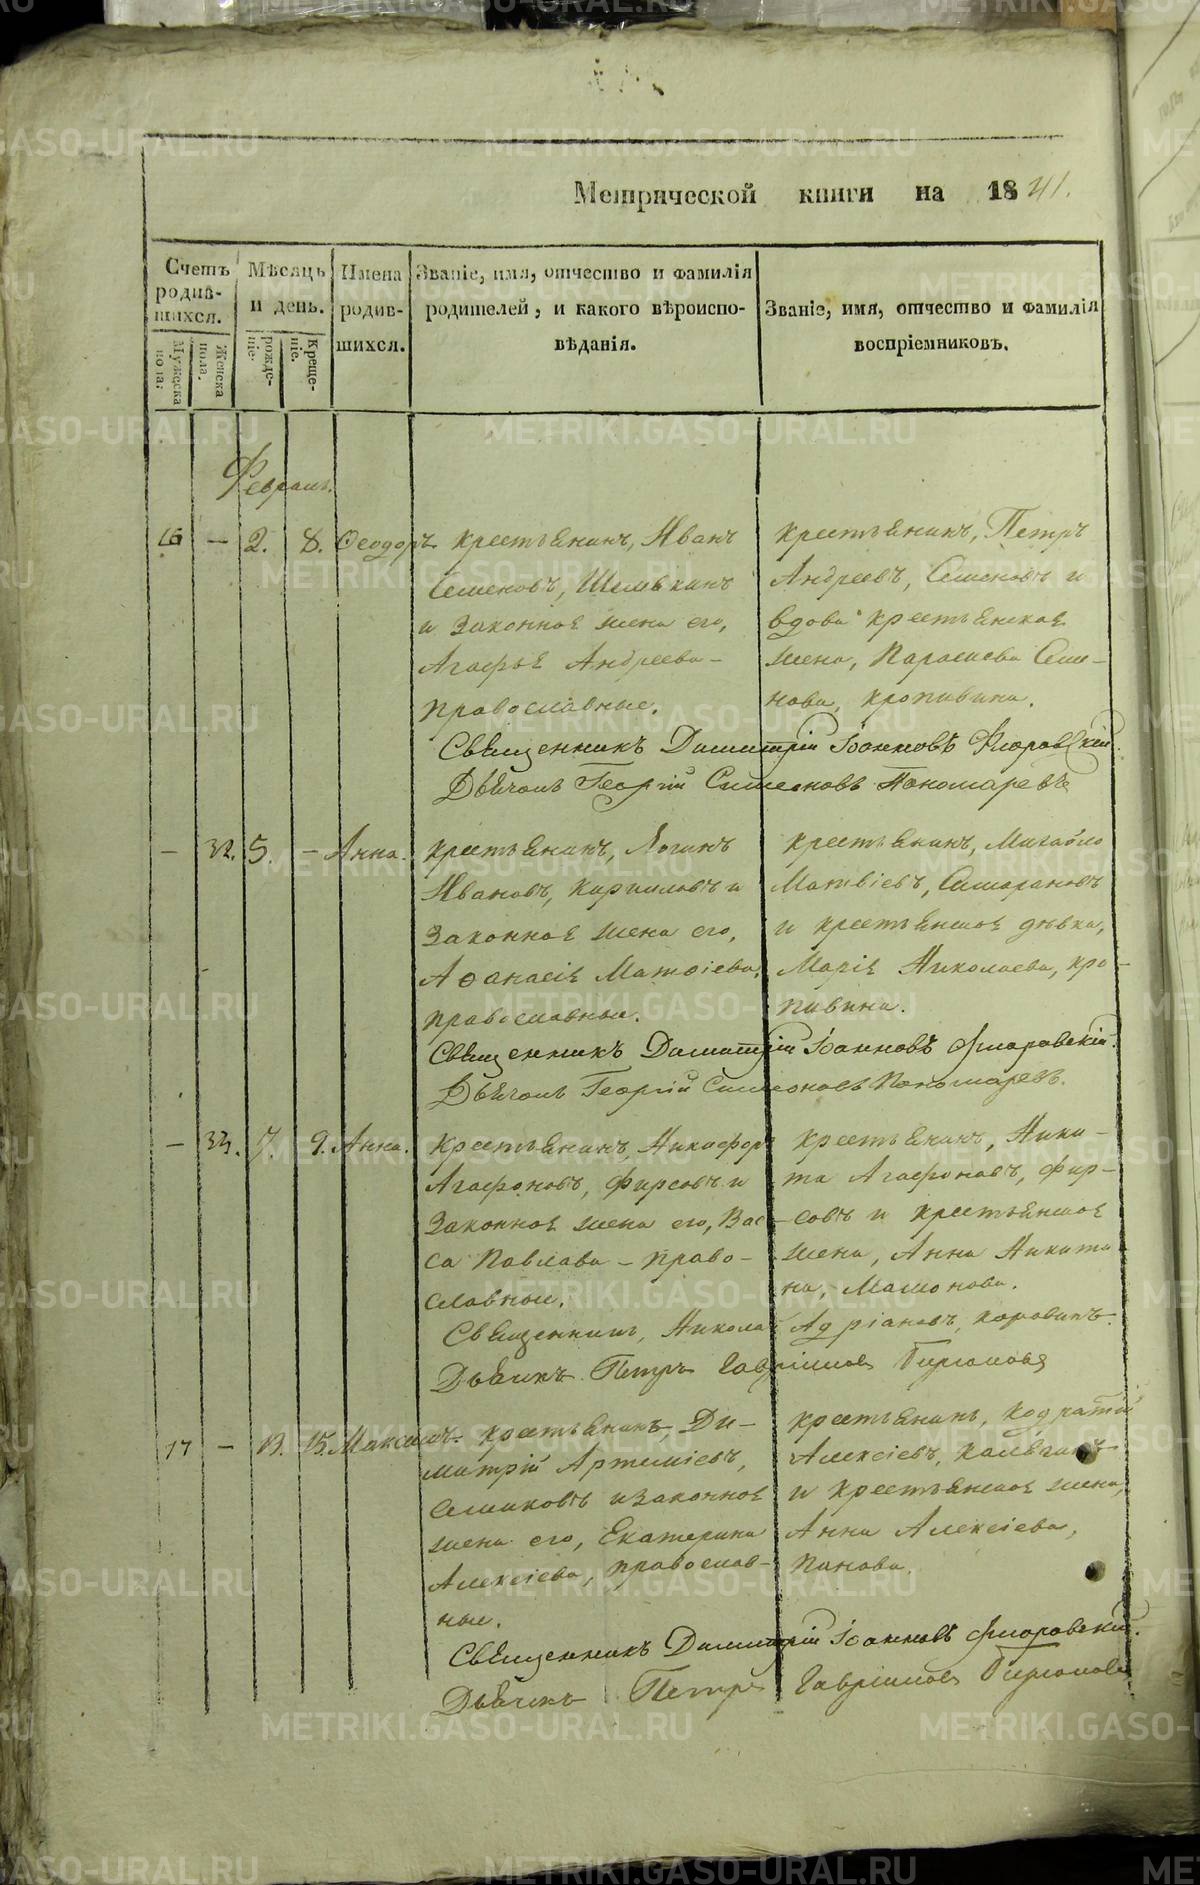 Метрической книги на 1841.
Счетъ родив-шихся.
Мужеска пола.
Женска пола.
Мѣсяцъ и день.
рожде-ніе.
Креще-ніе.
Имена родив-шихся.
Званіе, имя, отчество и фамилія
родителей, и какого вѣроиспо-
вѣданія.
Званіе, имя, отчество и фамилія
воспріемниковъ.
Февраль.
16 — 2. 8. Ѳеодоръ.
крестьянинъ, Иванъ
Семеновъ,
и законная жена его,
Агафья Андреева —
православные.
крестьянинъ, Петръ
Андреевъ, Семеновъ и
вдова крестьянская
жена, Параскева Семе-
нова, Кропивина.
Священникъ Димитрій Іоанновъ Флоровскій.
Дьячокъ Георгій Симеоновъ Пономаревъ
— 32. 5. — Анна.
крестьянинъ, Логинъ
Ивановъ, Кириловъ и
законная жена его,
Аѳанасія Матвіева,
православные.
крестьянинъ, Михайло
Матвіевъ,
и крестьянская дѣвка,
Марія Николаева, Кро-
пивина.
Священникъ Димитрій Іоанновъ Флоровскій.
Дьячокъ Георгій Симеоновъ Пономаревъ.
— 33. 7. 9. Анна.
крестьянинъ, Никифоръ
Агафоновъ, Фирсовъ и
законная жена его, Вас-
са Павлова — право-
славные.
крестьянинъ, Ники-
та Агафоновъ, Фир-
совъ и крестьянская
жена, Анна Никити-
на, Мамонова.
Священникъ, Николай Адріановъ, Коровинъ.
Дьячекъ Петръ Гавріиловъ
17 — 13. 15. Максимъ.
крестьянинъ Ди-
митрій Артеміевъ,
и законная
жена его, Екатерина
Алексіева, православ-
ные.
крестьянинъ, Кодратій
Алексіевъ,
и крестьянская жена,
Анна Алексіева,
Панова.
Священникъ Димитрій Іоанновъ Флоровскій.
Дьячекъ Петръ Гавріиловъ
METRIKI.GASO-URAL.RU